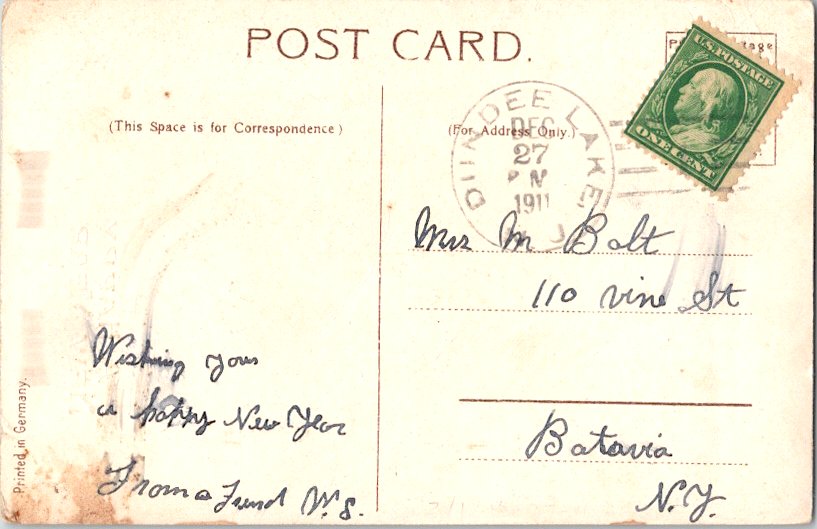 POST CARD.
(This Space is for Correspondence)
(For Address Only.)
U.S. POSTAGE
ONE CENT
DUNDEE LAKE
DEC
27
1911
N J
Mrs M Bolt
110 Vine St
Batavia
N.Y.
Wishing you
a happy New Year
From a Friend W.S.
Printed in Germany.